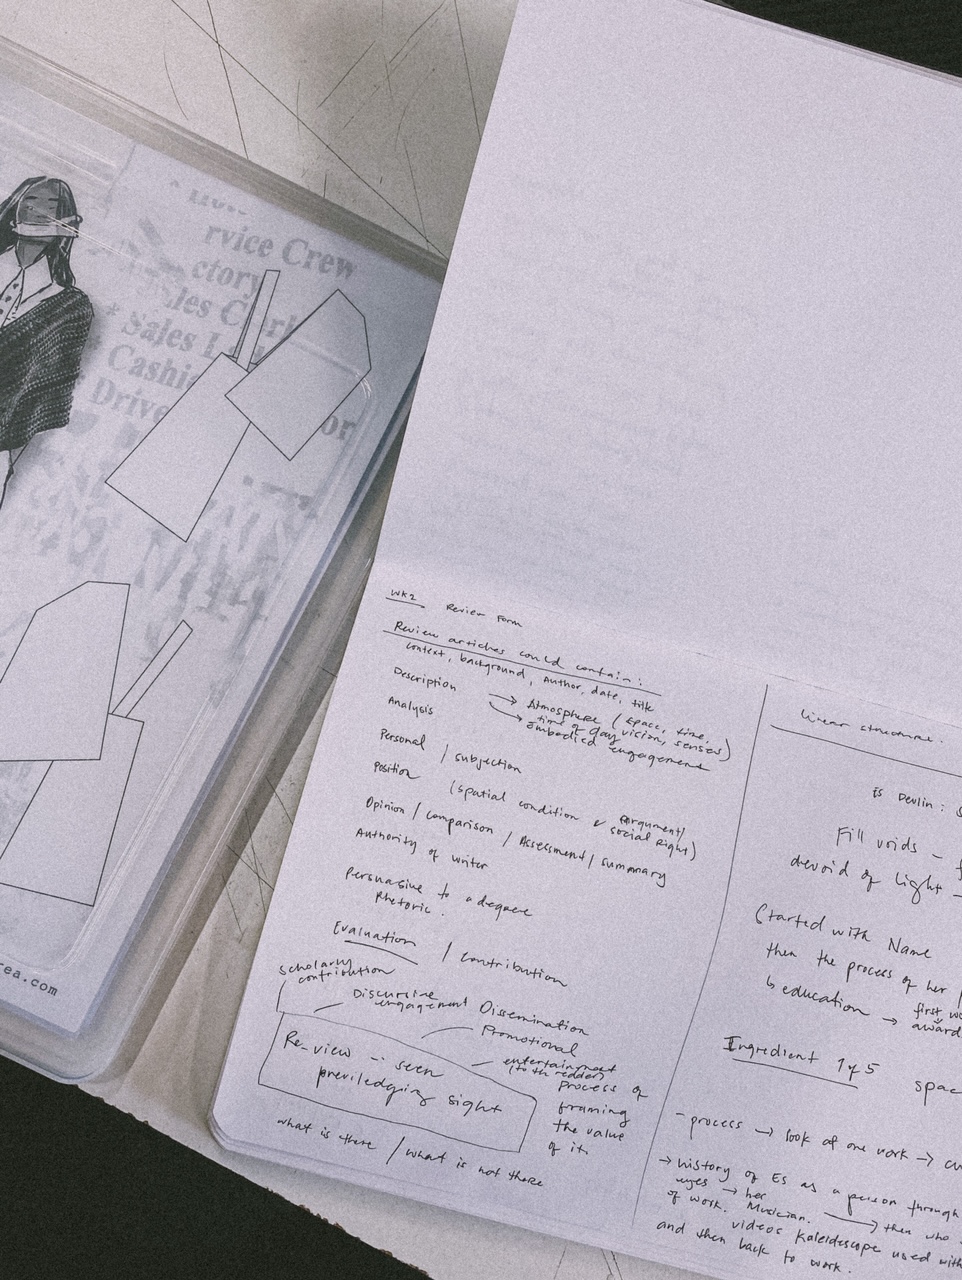 rvice Crew
ctory
les Clerk
* Sales L
Cashie
Drive
or
rea.com
WK2 Review Form
Review articles could contain:
context, background, Author, date, title
Description → Atmosphere (space, time,
time of day, vision, senses)
→ embodied engagement
Analysis
Personal / subjection
Position (spatial condition & (argument/
social Right)
Opinion / comparison / Assessment / summary
Authority of writer
Persuasive to a degree
rhetoric.
Evaluation / contribution
scholarly
contribution
Discursive
engagement
Dissemination
Promotional
entertainment
(to the reader)
Re_view - seen
previledging sight
process of
framing
the value
of it.
what is there / what is not there
linear structure.
Es Devlin: S
Fill voids -
devoid of light -
Started with Name
then the process of her
↳ education → first
award
Ingredient 1 of 5 spac
- process → look at one work →
→ history of Es as a person through
eyes → her
of work. Musician. → then who
videos kaleidescope used with
and then back to work.